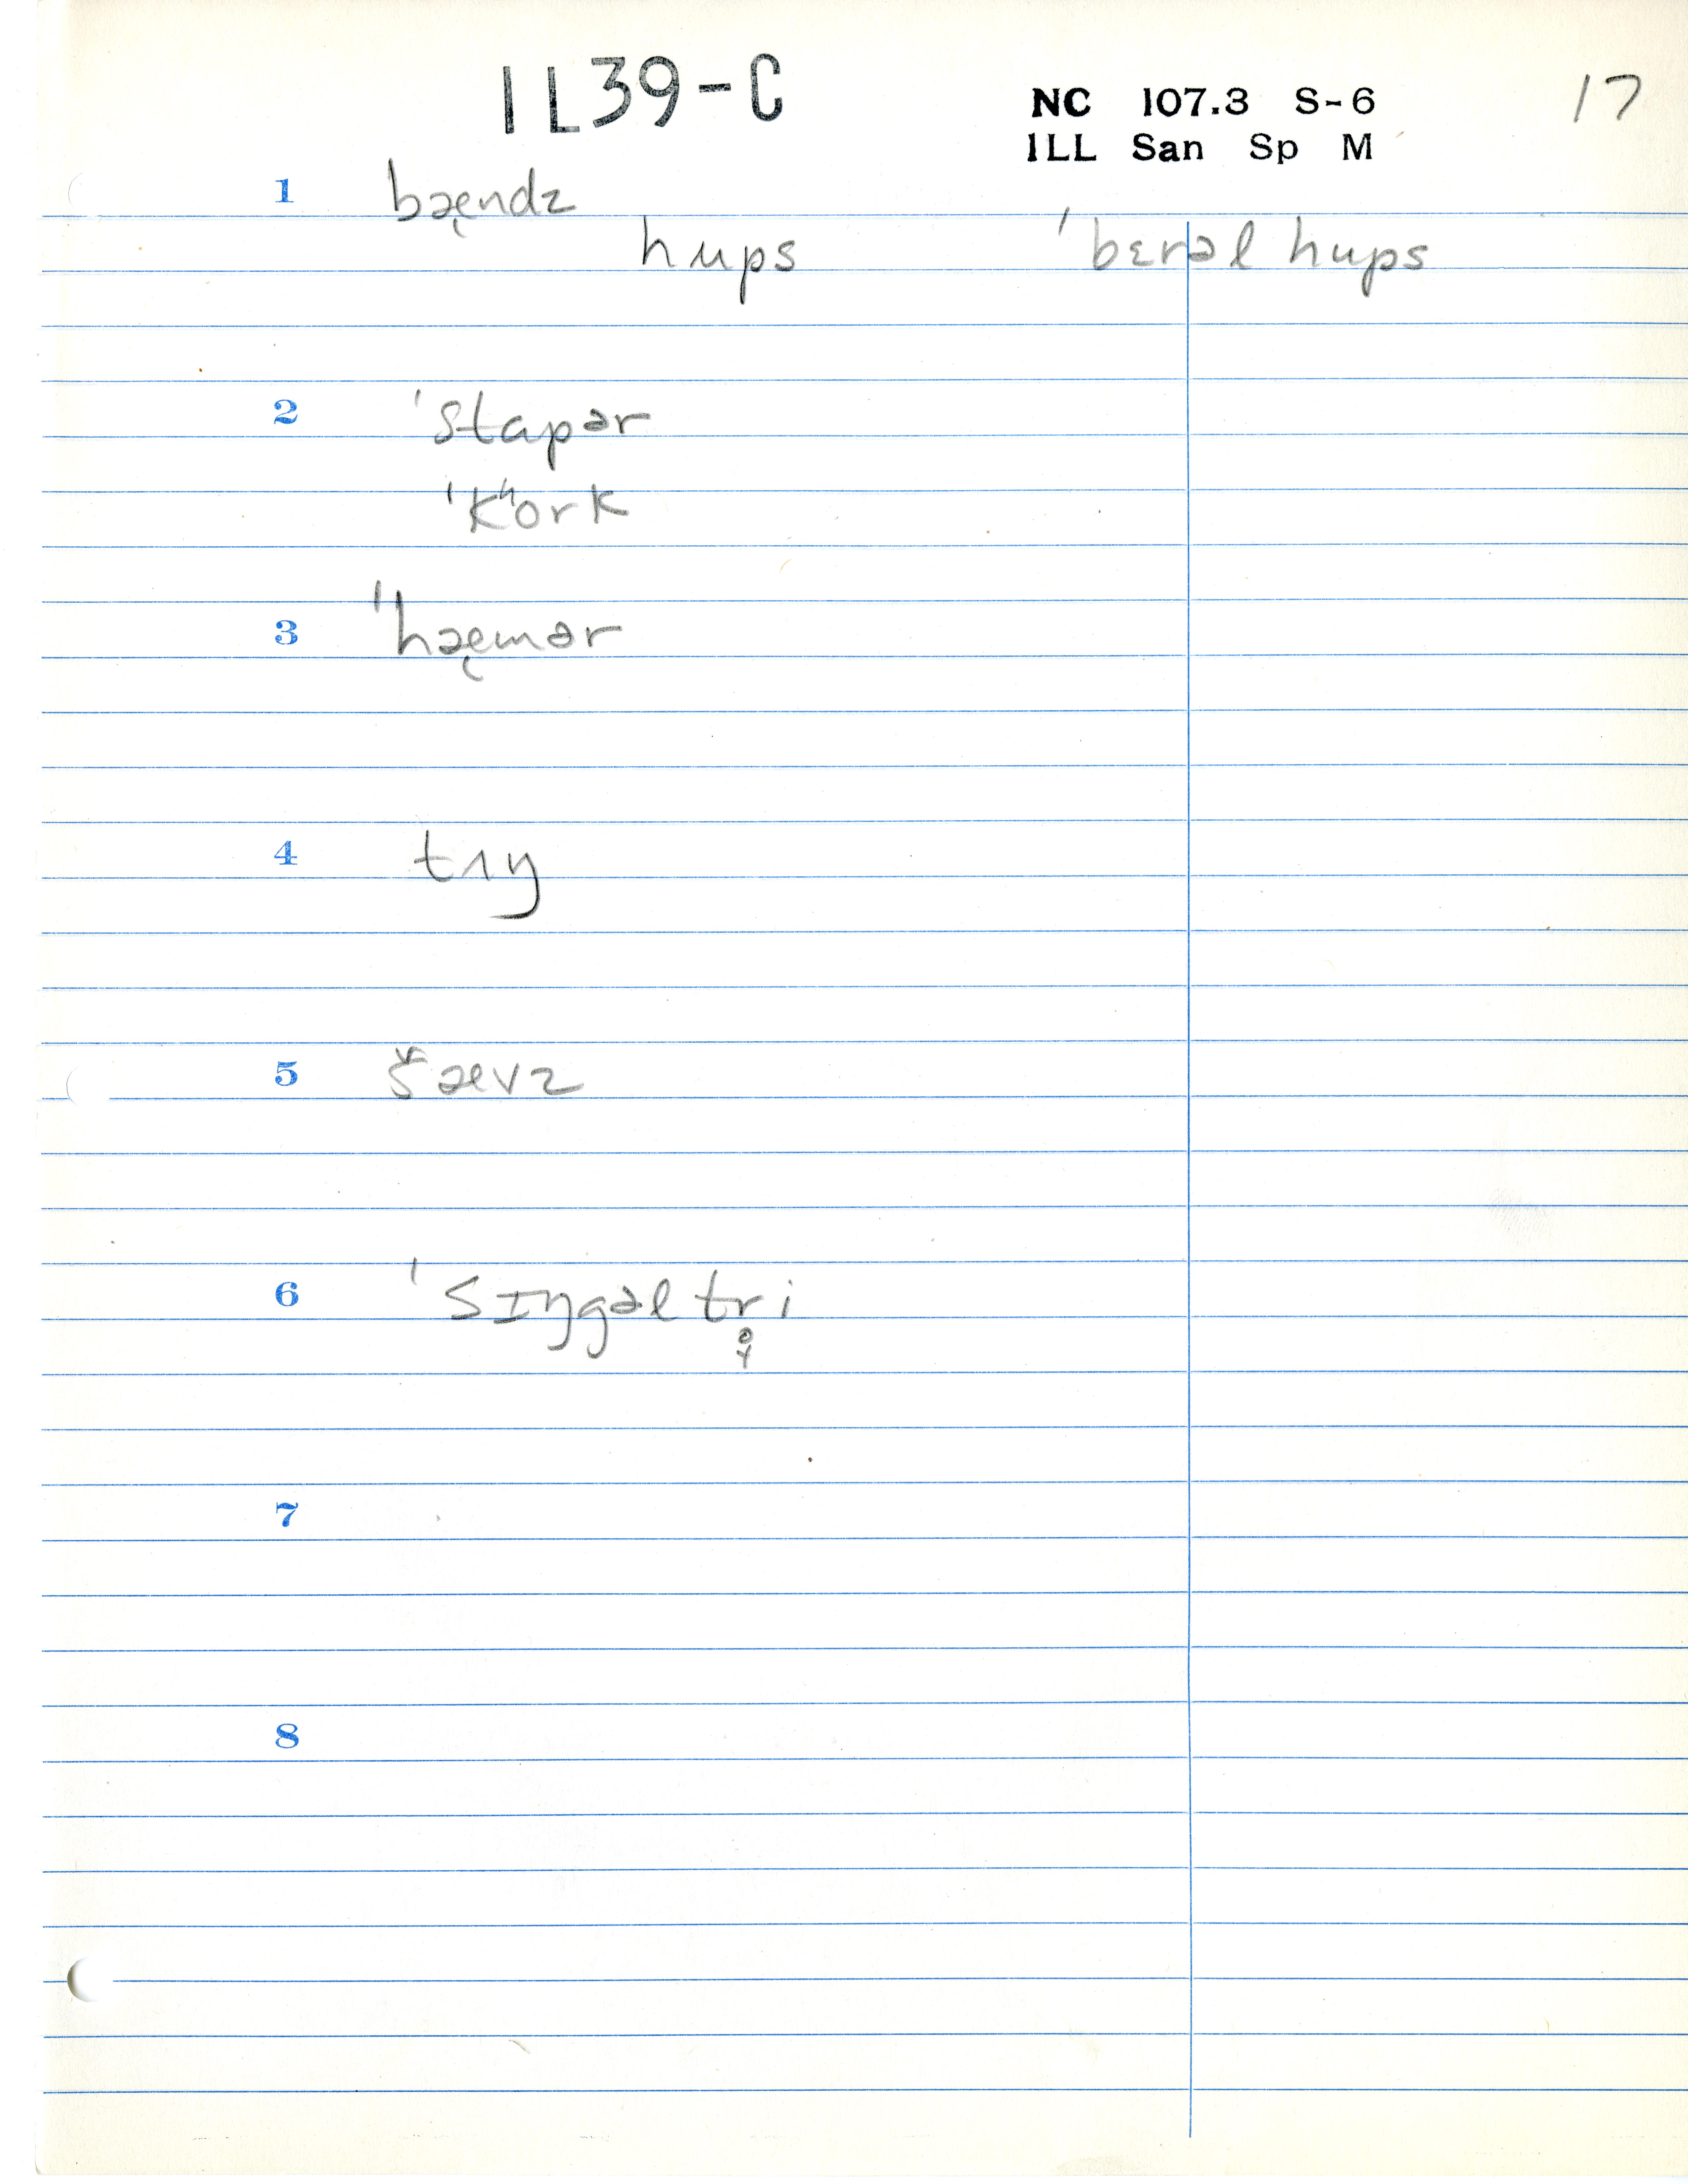 IL39-C
NC 107.3 S-6 17
ILL San Sp M
1 bæ̨ndz
hups ˈbɛrəl hups
2 ˈstapər
ˈkʰork
3 ˈhæ̨mər
4 tʌŋ
5 šævz
6 ˈsɪŋgəl tri
7
8